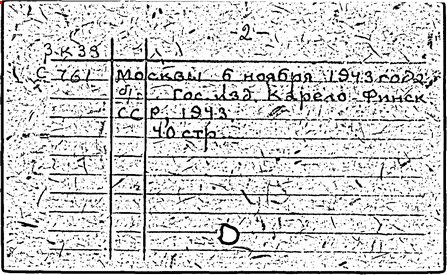 -2-
3К33
С 761 Москвы 6 ноября 1943 года,
Гос. Изд. Карело-Финск
ССР, 1943.
40 стр.